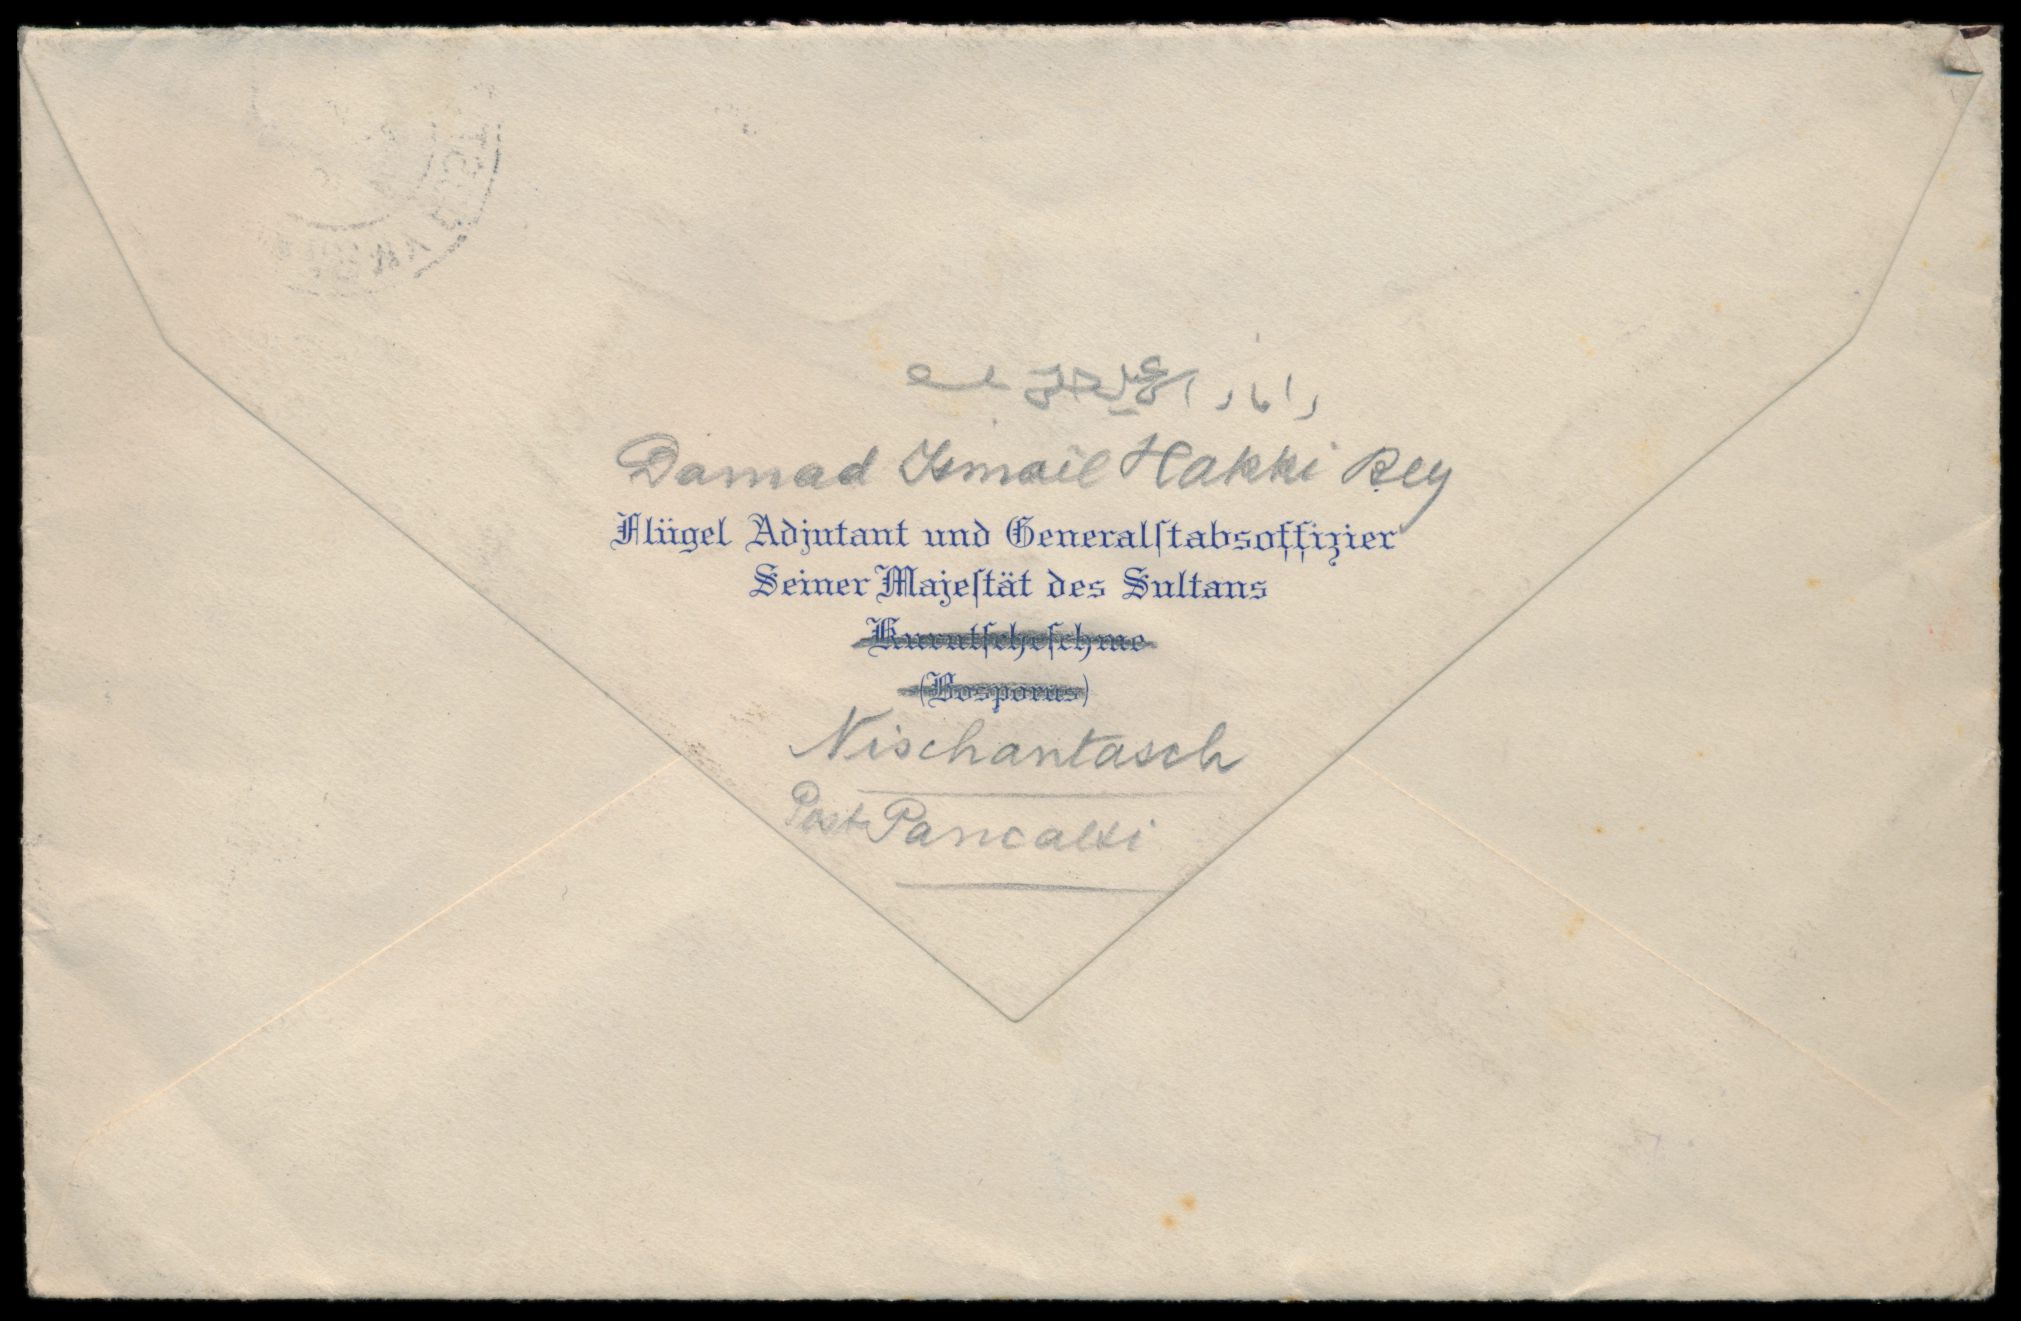 داماد اسمعیل حقی
Damad Ismail Hakki Bey
Flügel Adjutant und Generalſtabsoffizier
Seiner Majeſtät des Sultans
Kurutſcheſchme
(Bosporus)
Nischantasch
Post Pancaldi